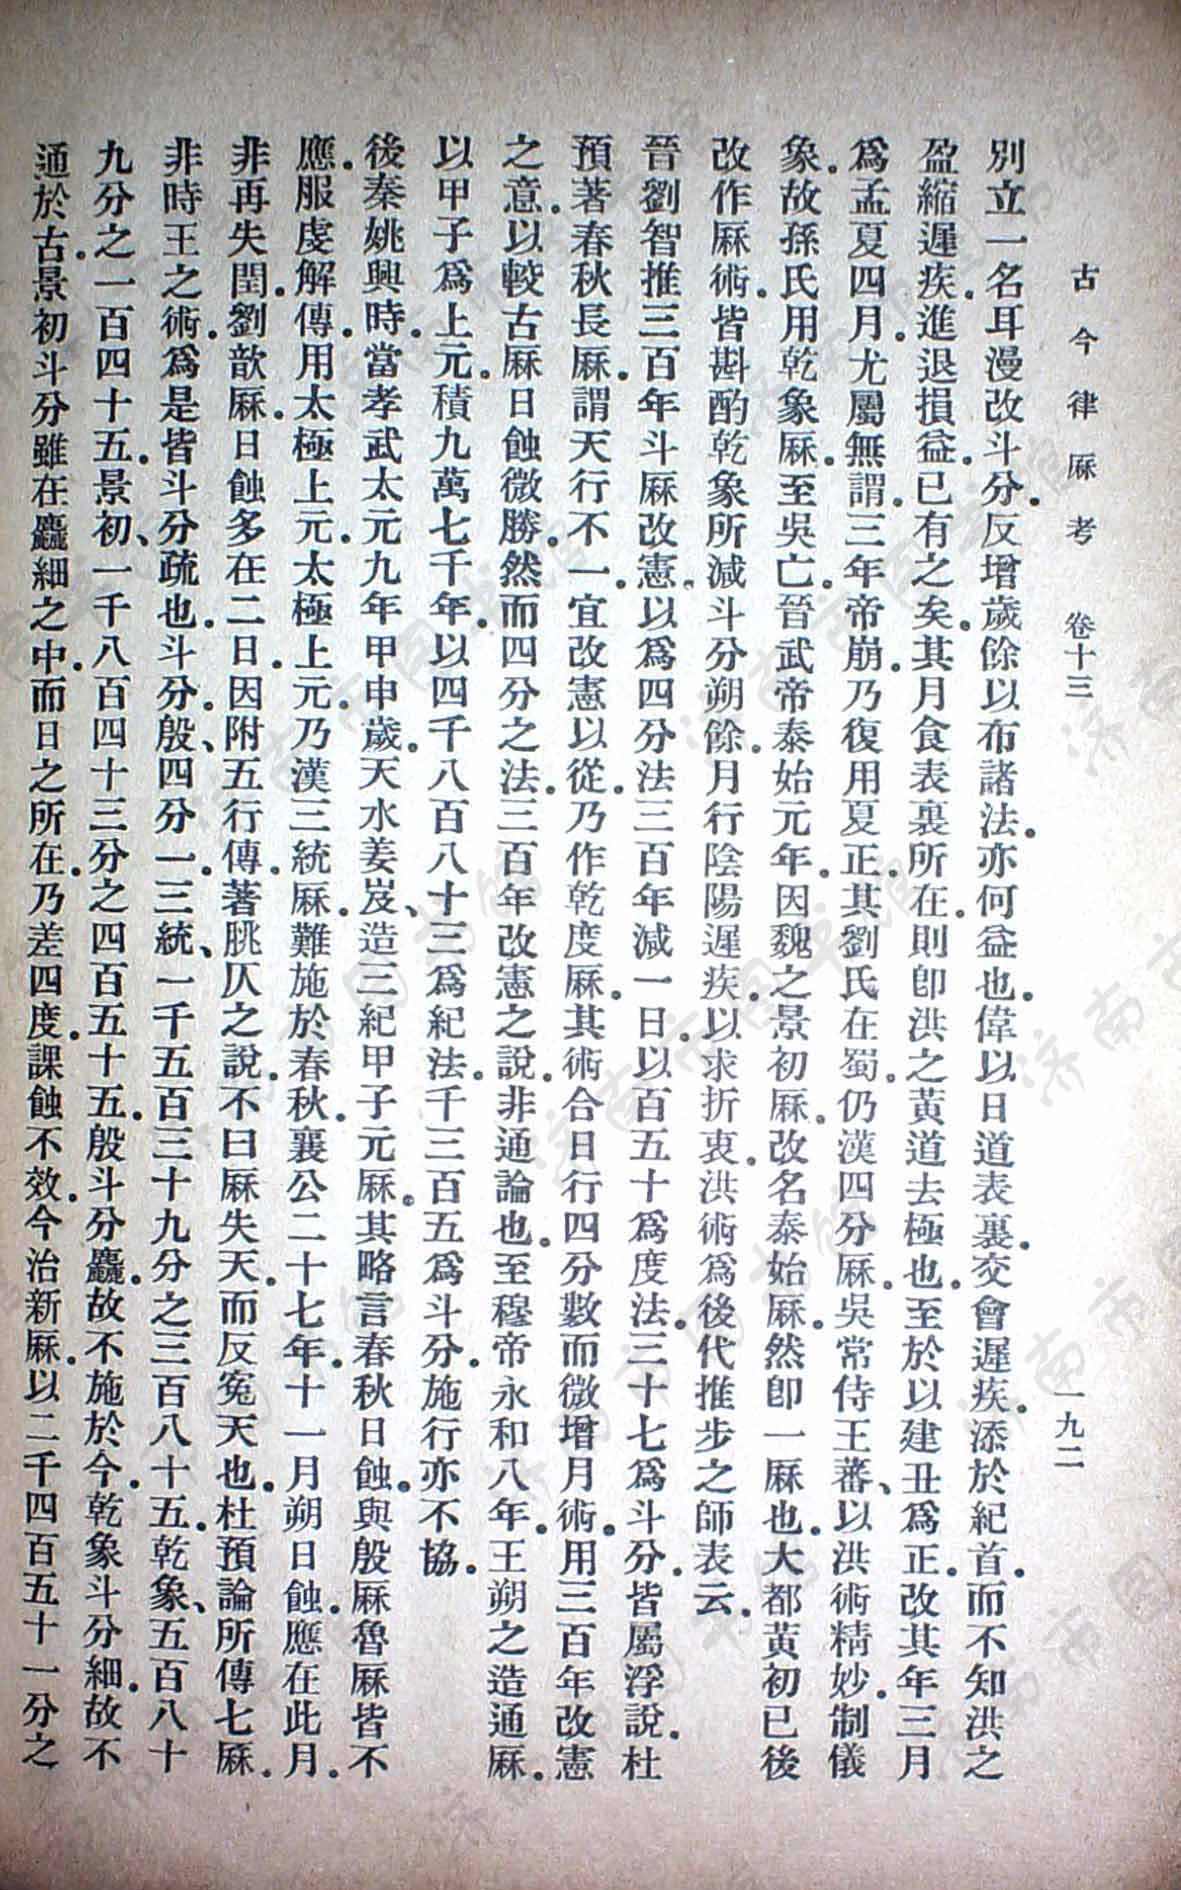 古今律厤考　卷十三　一九二
別立一名耳漫改斗分。反增歲餘以布諸法。亦何益也。偉以日道表裏。交會遲疾。添於紀首。而不知洪之
盈縮遲疾。進退損益。已有之矣。其月食表裏所在。則卽洪之黃道去極也。至於以建丑爲正。改其年三月
爲孟夏四月。尤屬無謂。三年帝崩。乃復用夏正。其劉氏在蜀。仍漢四分厤。吳常侍王蕃、以洪術精妙。制儀
象。故孫氏用乾象厤。至吳亡。晉武帝泰始元年。因魏之景初厤。改名泰始厤。然卽一厤也。大都黃初已後
改作厤術。皆斟酌乾象所減斗分朔餘。月行陰陽遲疾。以求折衷。洪術爲後代推步之師表云。
晉劉智推三百年斗厤改憲。以爲四分法三百年減一日。以百五十爲度法。三十七爲斗分。皆屬浮說。杜
預著春秋長厤。謂天行不一。宜改憲以從。乃作乾度厤。其術合日行四分數而微增月術。用三百年改憲
之意。以較古厤日蝕微勝。然而四分之法。三百年改憲之說。非通論也。至穆帝永和八年。王朔之造通厤。
以甲子爲上元。積九萬七千年。以四千八百八十三爲紀法。千三百五爲斗分。施行亦不協。
後秦姚興時。當孝武太元九年甲申歲。天水姜岌、造三紀甲子元厤。其略言春秋日蝕。與殷厤魯厤皆不
應。服虔解傳。用太極上元。太極上元。乃漢三統厤。難施於春秋。襄公二十七年。十一月朔日蝕。應在此月。
非再失閏。劉歆厤。日蝕多在二日。因附五行傳。著朓仄之說。不曰厤失天。而反冤天也。杜預論所傳七厤。
非時王之術。爲是皆斗分疏也。斗分。殷、四分一。三統、一千五百三十九分之三百八十五。乾象、五百八十
九分之一百四十五。景初、一千八百四十三分之四百五十五。殷斗分麤。故不施於今。乾象斗分細。故不
通於古。景初斗分雖在麤細之中。而日之所在。乃差四度。課蝕不效。今治新厤。以二千四百五十一分之